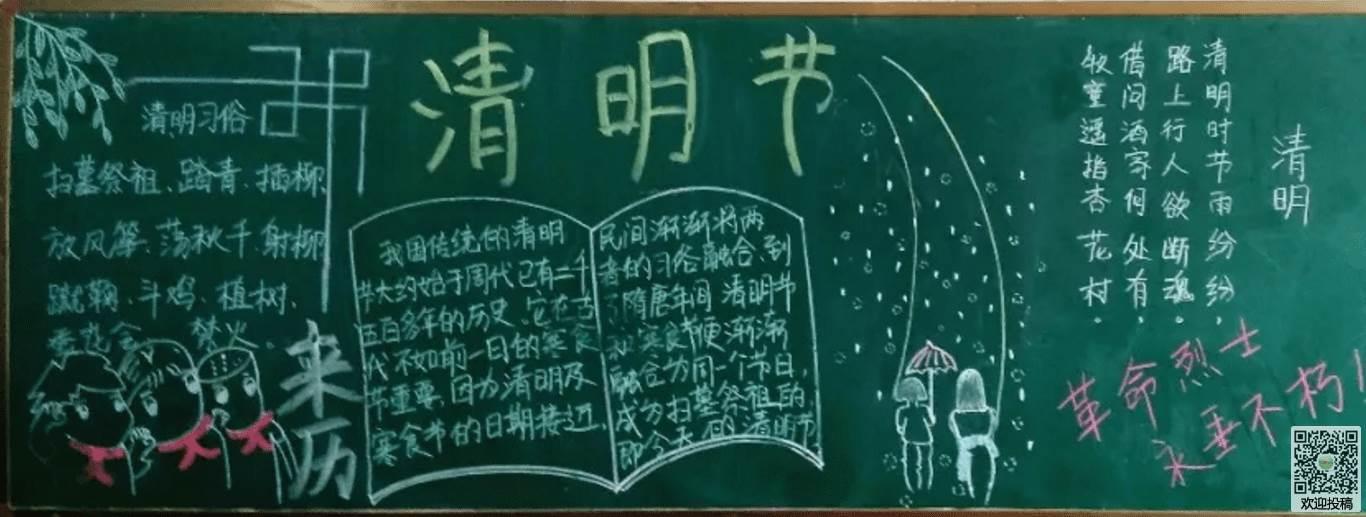 清明节
清明习俗
扫墓祭祖、踏青、插柳、
放风筝、荡秋千、射柳
蹴鞠、斗鸡、植树、
蚕花会、禁火。
来历
我国传统的清明
节大约始于周代已有二千
五百多年的历史,它在古
代不如前一日的寒食
节重要,因为清明及
寒食节的日期接近,
民间渐渐将两
者的习俗融合,到
了隋唐年间 清明节
和寒食节便渐渐
融合为同一个节日,
成为扫墓祭祖的,
即今天的清明节
清明
清明时节雨纷纷,
路上行人欲断魂。
借问酒家何处有,
牧童遥指杏花村。
革命烈士
永垂不朽!
欢迎投稿